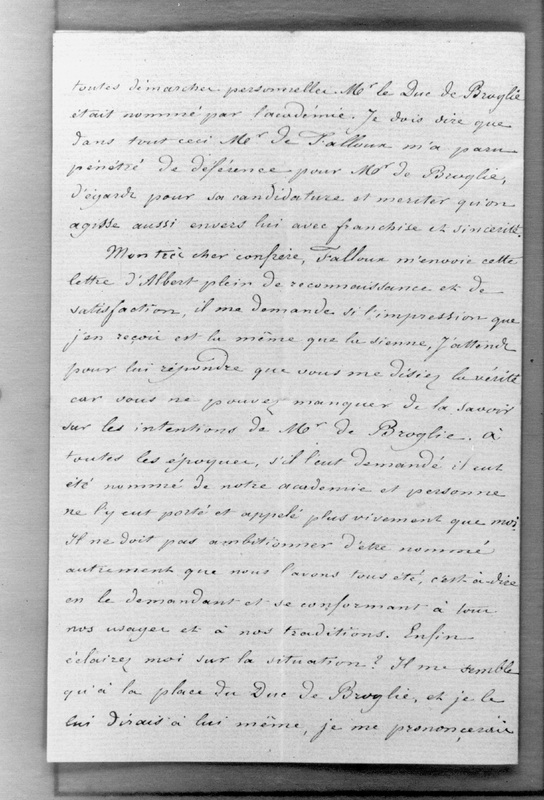 toutes démarches personnelles Mr le Duc de Broglie
était nommé par l'académie. Je dois dire que
dans tout ceci Mr de Falloux m'a paru
pénétré de déférence pour Mr de Broglie,
d'égards pour sa candidature et meriter qu'on
agisse aussi envers lui avec franchise et sincerité.
Mon très cher confrère, Falloux m'envoie cette
lettre d'Albert plein de reconnaissance et de
satisfaction, il me demande si l'impression que
j'en reçois est la même que la sienne, J'attends
pour lui répondre que vous me disiez la vérité
car vous ne pouvez manquer de la savoir
sur les intentions de Mr de Broglie. à
toutes les époques, s'il l'eut demandé il eut
été nommé de notre academie et personne
ne l'y eut porté et appelé plus vivement que moi.
Il ne doit pas ambitionner d'etre nommé
autrement que nous l'avons tous été, c'est à dire
en le demandant et se conformant à tous
nos usages et à nos traditions. Enfin
éclairez moi sur la situation? Il me semble
qu'à la place du Duc de Broglie, et je le
lui dirais à lui même, je me prononçerais